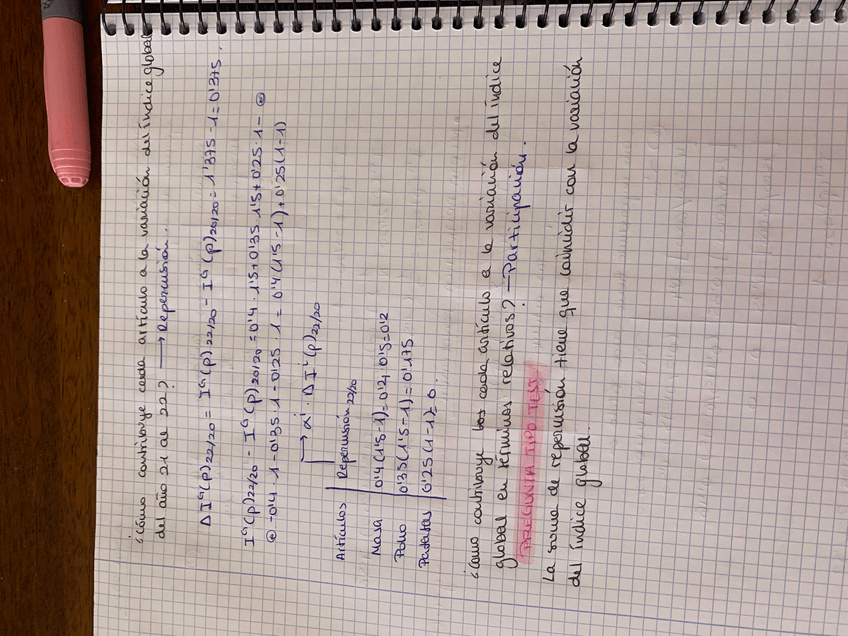 ¿Cómo contribuye cada artículo a la variación del índice global
del año 21 al 22? → Repercusión.
ΔIᴳ(p)22/20 = Iᴳ(p)22/20 - Iᴳ(p)20/20 = 1'375 - 1 = 0'375.
Iᴳ(p)22/20 - Iᴳ(p)20/20 = 0'4 · 1'5 + 0'35 · 1'5 + 0'25 · 1 -
- 0'4 · 1 - 0'35 · 1 - 0'25 · 1 = 0'4 (1'5 - 1) + 0'25 (1 - 1)
→ αⁱ · ΔIⁱ(p)22/20
Artículos | Repercusión 22/20
Masa | 0'4 (1'5 - 1) = 0'4 · 0'5 = 0'2
Pollo | 0'35 (1'5 - 1) = 0'175
Patatas | 0'25 (1 - 1) = 0.
¿Cómo contribuye cada artículo a la variación del índice
global en términos relativos? → Participación.
PREGUNTA TIPO TEST
La suma de repercusión tiene que coincidir con la variación
del índice global.